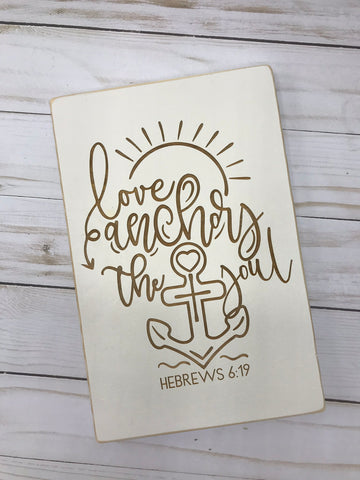 love
anchors
the soul
HEBREWS 6:19